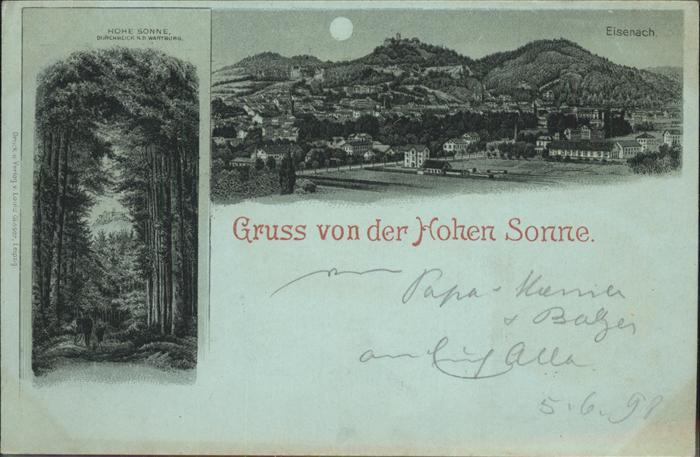 HOHE SONNE,
DURCHBLICK N. D. WARTBURG.
Eisenach.
Druck u. Verlag v. Louis Glaser, Leipzig
Gruss von der Hohen Sonne.
von
Papa
& Balzer
an Euch Alle.
5.6.98